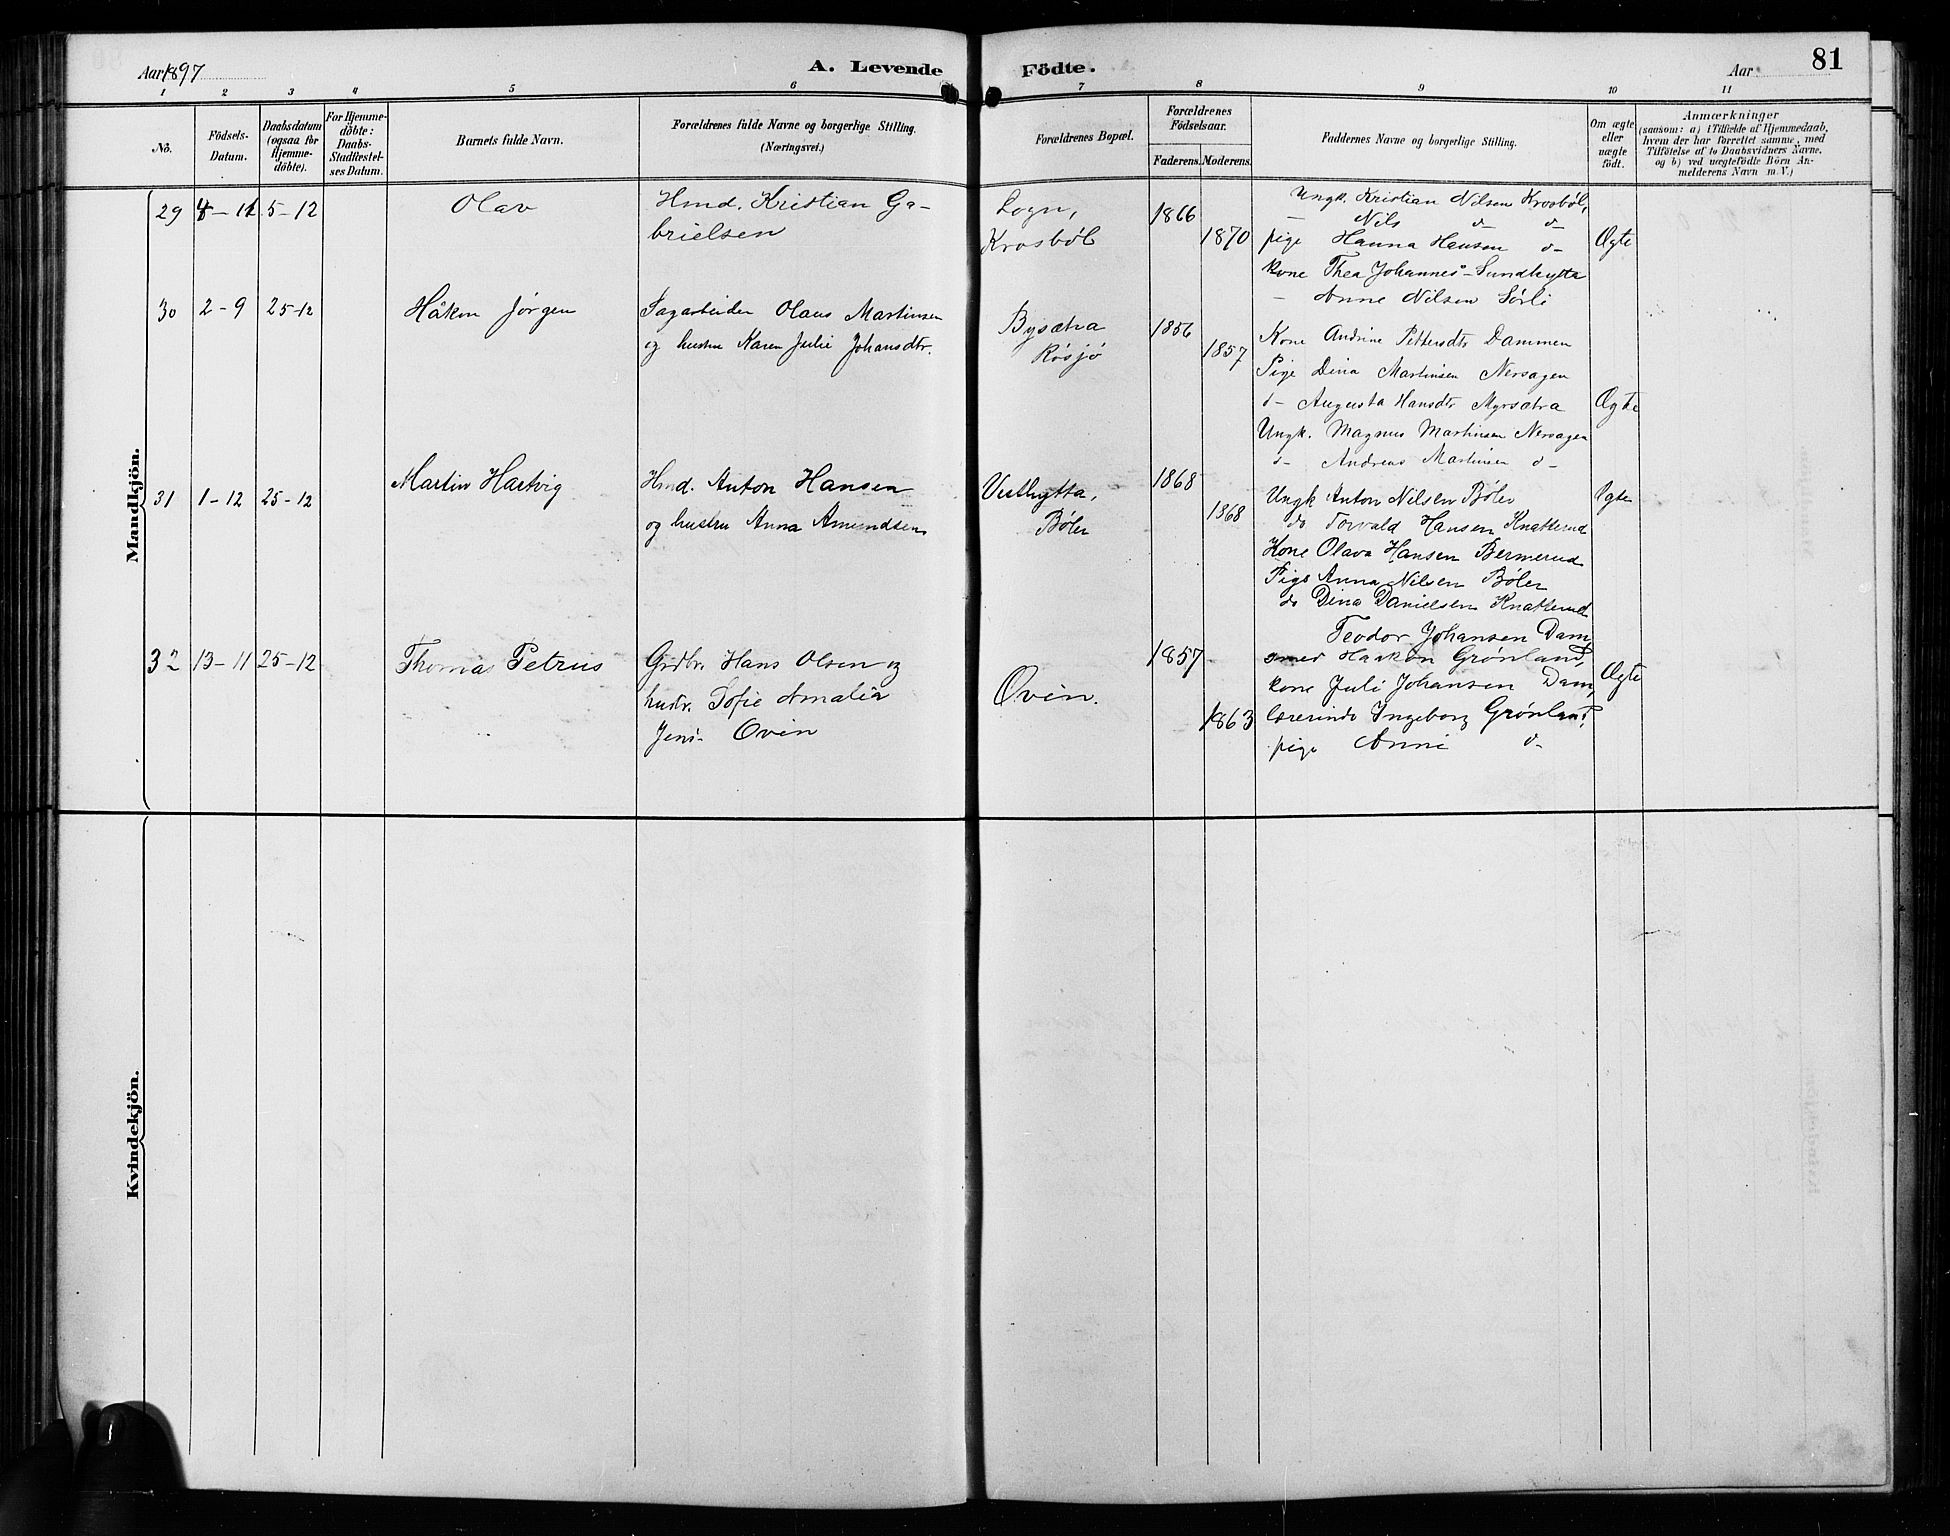 Aar 1897
A. Levende Födte.
Aar
81
1 2 3 4 5 6 7 8 9 10 11
No.
Födsels-Datum.
Daabsdatum (ogsaa for Hjemme-döbte).
For Hjemme-döbte: Daabs-Stadfæstel-ses Datum.
Barnets fulde Navn.
Forældrenes fulde Navne og borgerlige Stilling.
(Næringsvei.)
Forældrenes Bopæl.
Forældrenes Födselsaar.
Faderens. Moderens.
Faddernes Navne og borgerlige Stilling.
Om ægte eller uægte födt.
Anmærkninger
(saasom: a) i Tilfælde af Hjemmedaab,
hvem der har forrettet samme, med
Tilföielse af to Daabsvidners Navne,
og b) ved uægtefödte Börn An-
melderens Navn m. V.)
Mandkjön.
29 4-11 5-12 Olav
Hmd. Kristian Ga-
brielsen
Sogn,
Krosbøl
1866
1870
Ungk. Kristian Nilsen Krosbøl,
– Nils d– d–
pige Hanna Hansen d–
kone Thea Johannes- Sundhytta
– Anne Nilsen Sørli
Ægte
30 2-9 25-12 Håkon Jörgen
Sagarbeider Olaus Martinsen
og hustru Karen Julie Johansdtr.
Bysætra
Røsjø
1856
1857
Kone Andrine Pettersdtr Dammen
Pige Dina Martinsen Nersagen
d– Augusta Hansdtr Myrsætra
Ungk. Magnus Martinsen Nersagen
d– Andreas Martinsen d–
Ægte
31 1-12 25-12 Martin Hartvig
Hmd. Anton Hansen
og hustru Anna Amundsen
Vesthytta,
Bøler
1868
1868
Ungk Anton Nilsen Bøler
do Torvald Hansen Knatterud
Kone Olava Hansen Bermerud
Pige Anna Nilsen Bøler
do Dina Danielsen Knatterud
Ægte
32 13-11 25-12 Thomas Petrus
Grdbr. Hans Olsen og
hustr. Sofie Amalia
Jens- Ovin
Ovin.
1857
1863
Teodor Johansen Dam,
smed Haakon Grønland,
kone Juli Johansen Dam,
lærerinde Ingeborg Grønland,
pige Anni d–
Ægte
Kvindekjön.